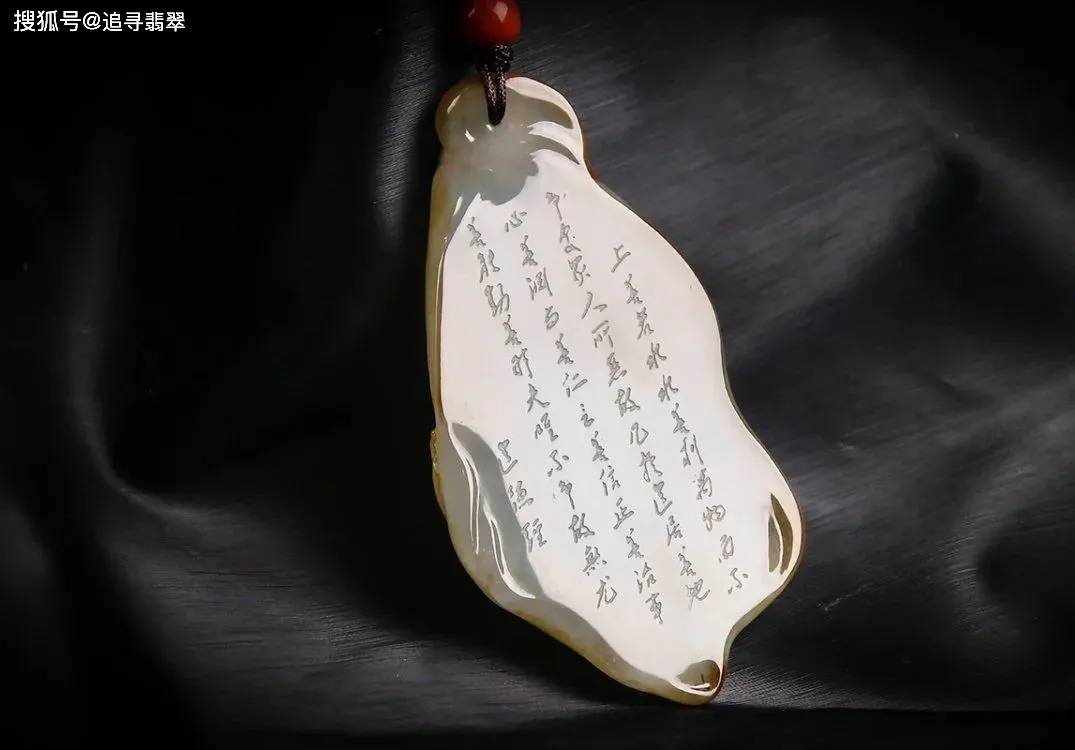 搜狐号@追寻翡翠
上善若水水善利萬物而不
争處眾人所惡故几於道居善地
心善渊与善仁言善信正善治事
善能動善时夫唯不争故無尤
道德經